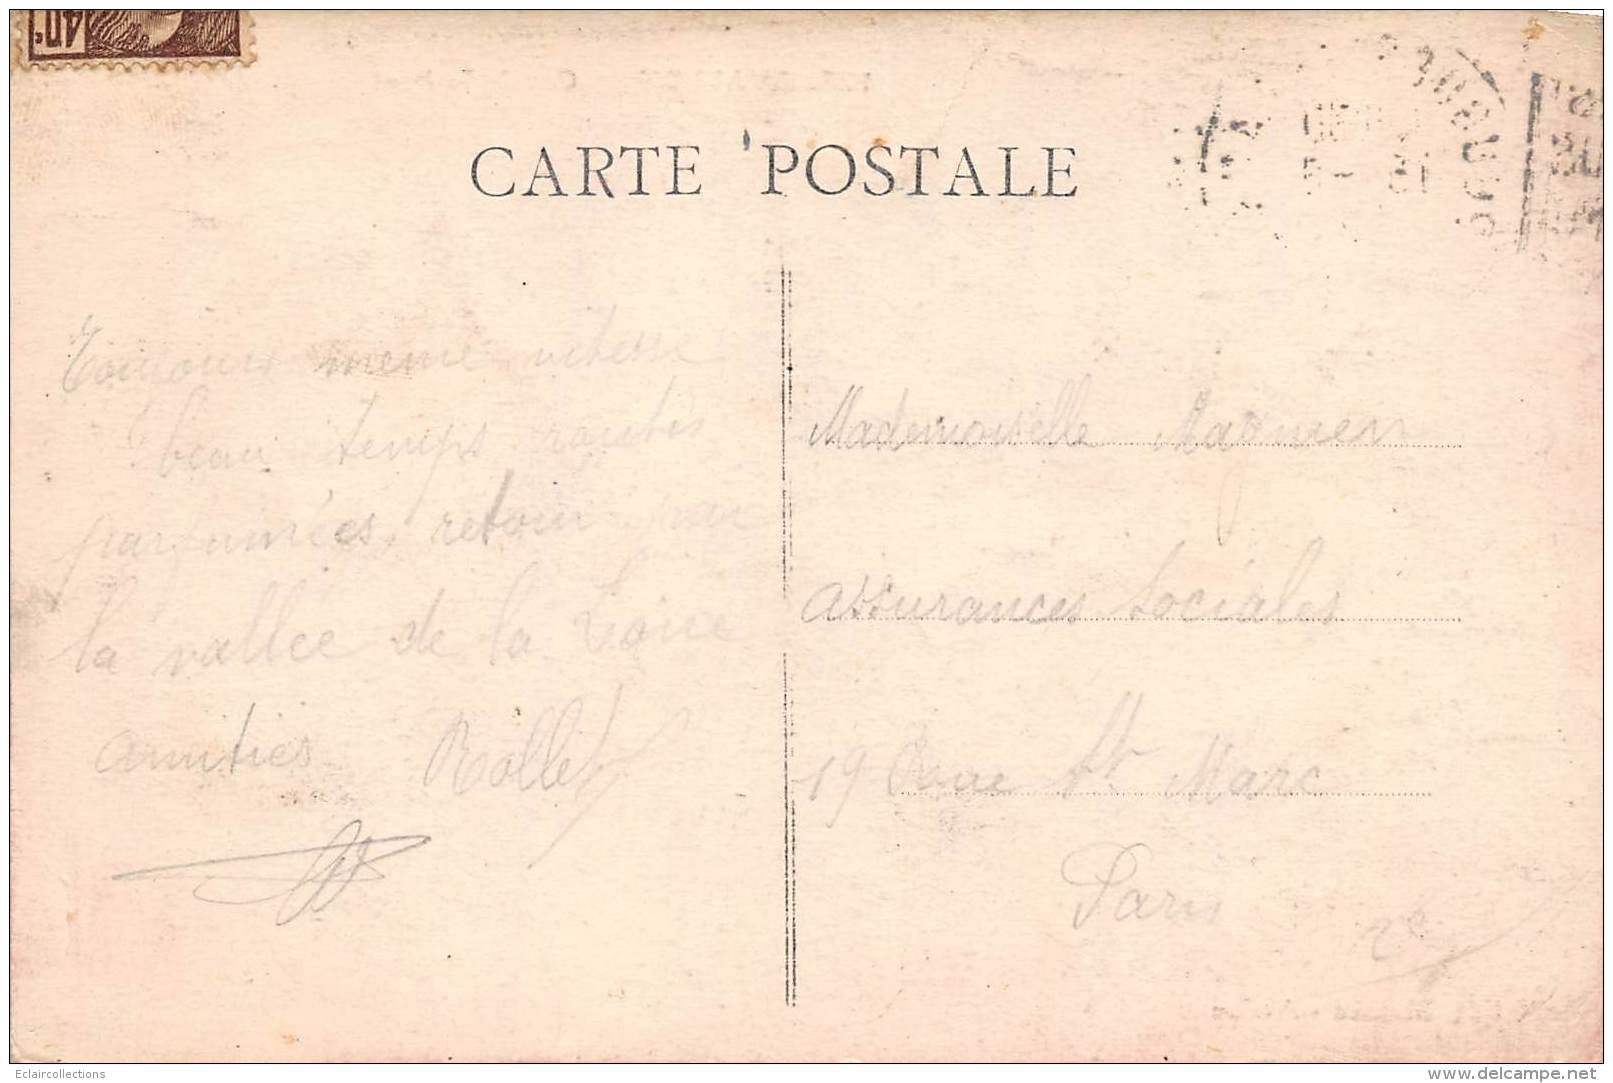 40c
CARTE POSTALE
Toujours meme vitesse
beau temps routes
parfumées, retour par
la vallée de la Loire
amitiés Rollet
Mademoiselle Magnien
assurances Sociales
19 Rue St Marc
Paris 2e
Eclaircollections
www.delcampe.net